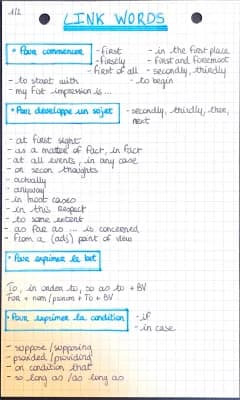 1/2
LINK WORDS
• Pour commencer
- first
- in the first place
- firstly
- first and foremost
- first of all
- secondly, thirdly
- to start with
- to begin
- my fist impression is...
• Pour développe un sujet
- secondly, thirdly, then, next
- at first sight
- as a matter of fact, in fact
- at all events, in any case
- on secon thoughts
- actually
- anyway
- in most cases
- in this respect
- to some extent
- as far as ... is concerned
- from a (adj) point of view
• Pour exprimer le but
To, in order to, so as to + BV
For + nom/pronom + To + BV
• Pour exprimer la condition
- if
- in case
- suppose/supposing
- provided/providing
- on condition that
- so long as / as long as